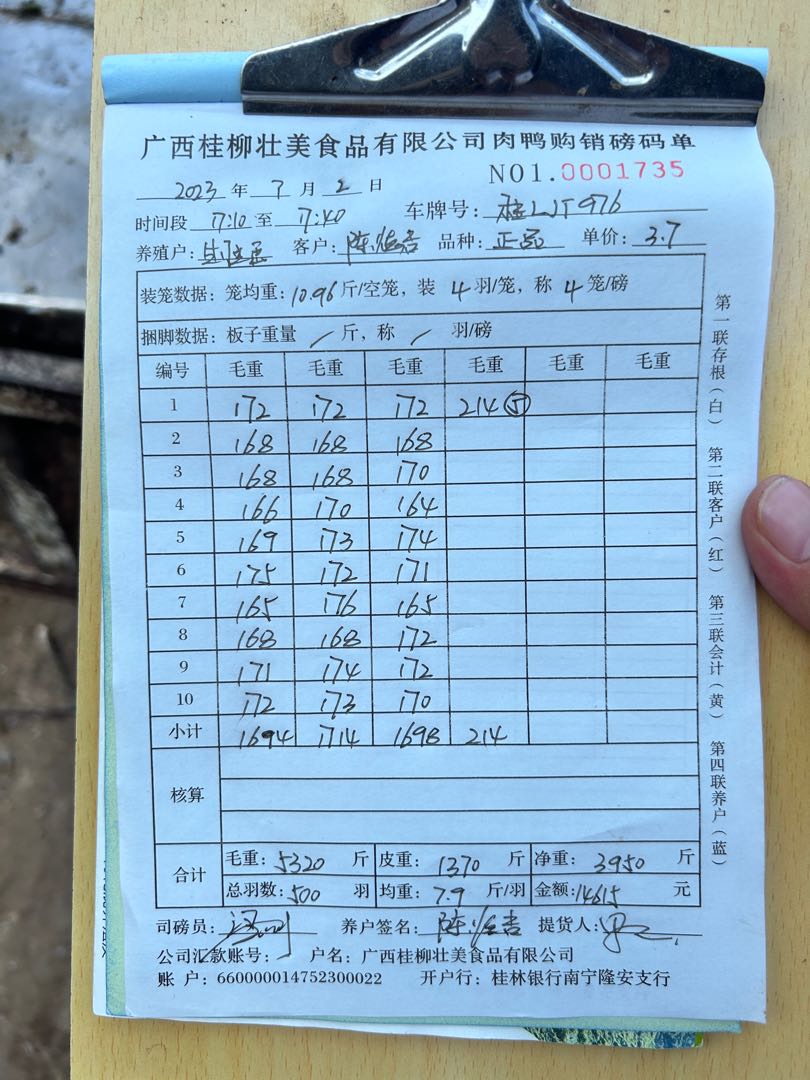 广西桂柳壮美食品有限公司肉鸭购销磅码单
NO1.0001735
2023 年 7 月 2 日
时间段 17:10 至 17:40 车牌号: 桂LJT976
养殖户: 客户: 陈 品种: 正品 单价: 3.7
装笼数据: 笼均重: 10.96 斤/空笼, 装 4 羽/笼, 称 4 笼/磅
捆脚数据: 板子重量 / 斤, 称 / 羽/磅
编号 毛重 毛重 毛重 毛重 毛重 毛重
1 172 172 172 214 ⑤
2 168 168 168
3 168 168 170
4 166 170 164
5 169 173 174
6 175 172 171
7 165 176 165
8 168 168 172
9 171 174 172
10 172 173 170
小计 1694 1714 1698 214
核算
合计 毛重: 5320 斤 皮重: 1370 斤 净重: 3950 斤
总羽数: 500 羽 均重: 7.9 斤/羽 金额: 14615 元
司磅员: 养户签名: 陈 提货人:
公司汇款账号: 户名: 广西桂柳壮美食品有限公司
账 户: 660000014752300022 开户行: 桂林银行南宁隆安支行
第一联存根(白) 第二联客户(红) 第三联会计(黄) 第四联养户(蓝)